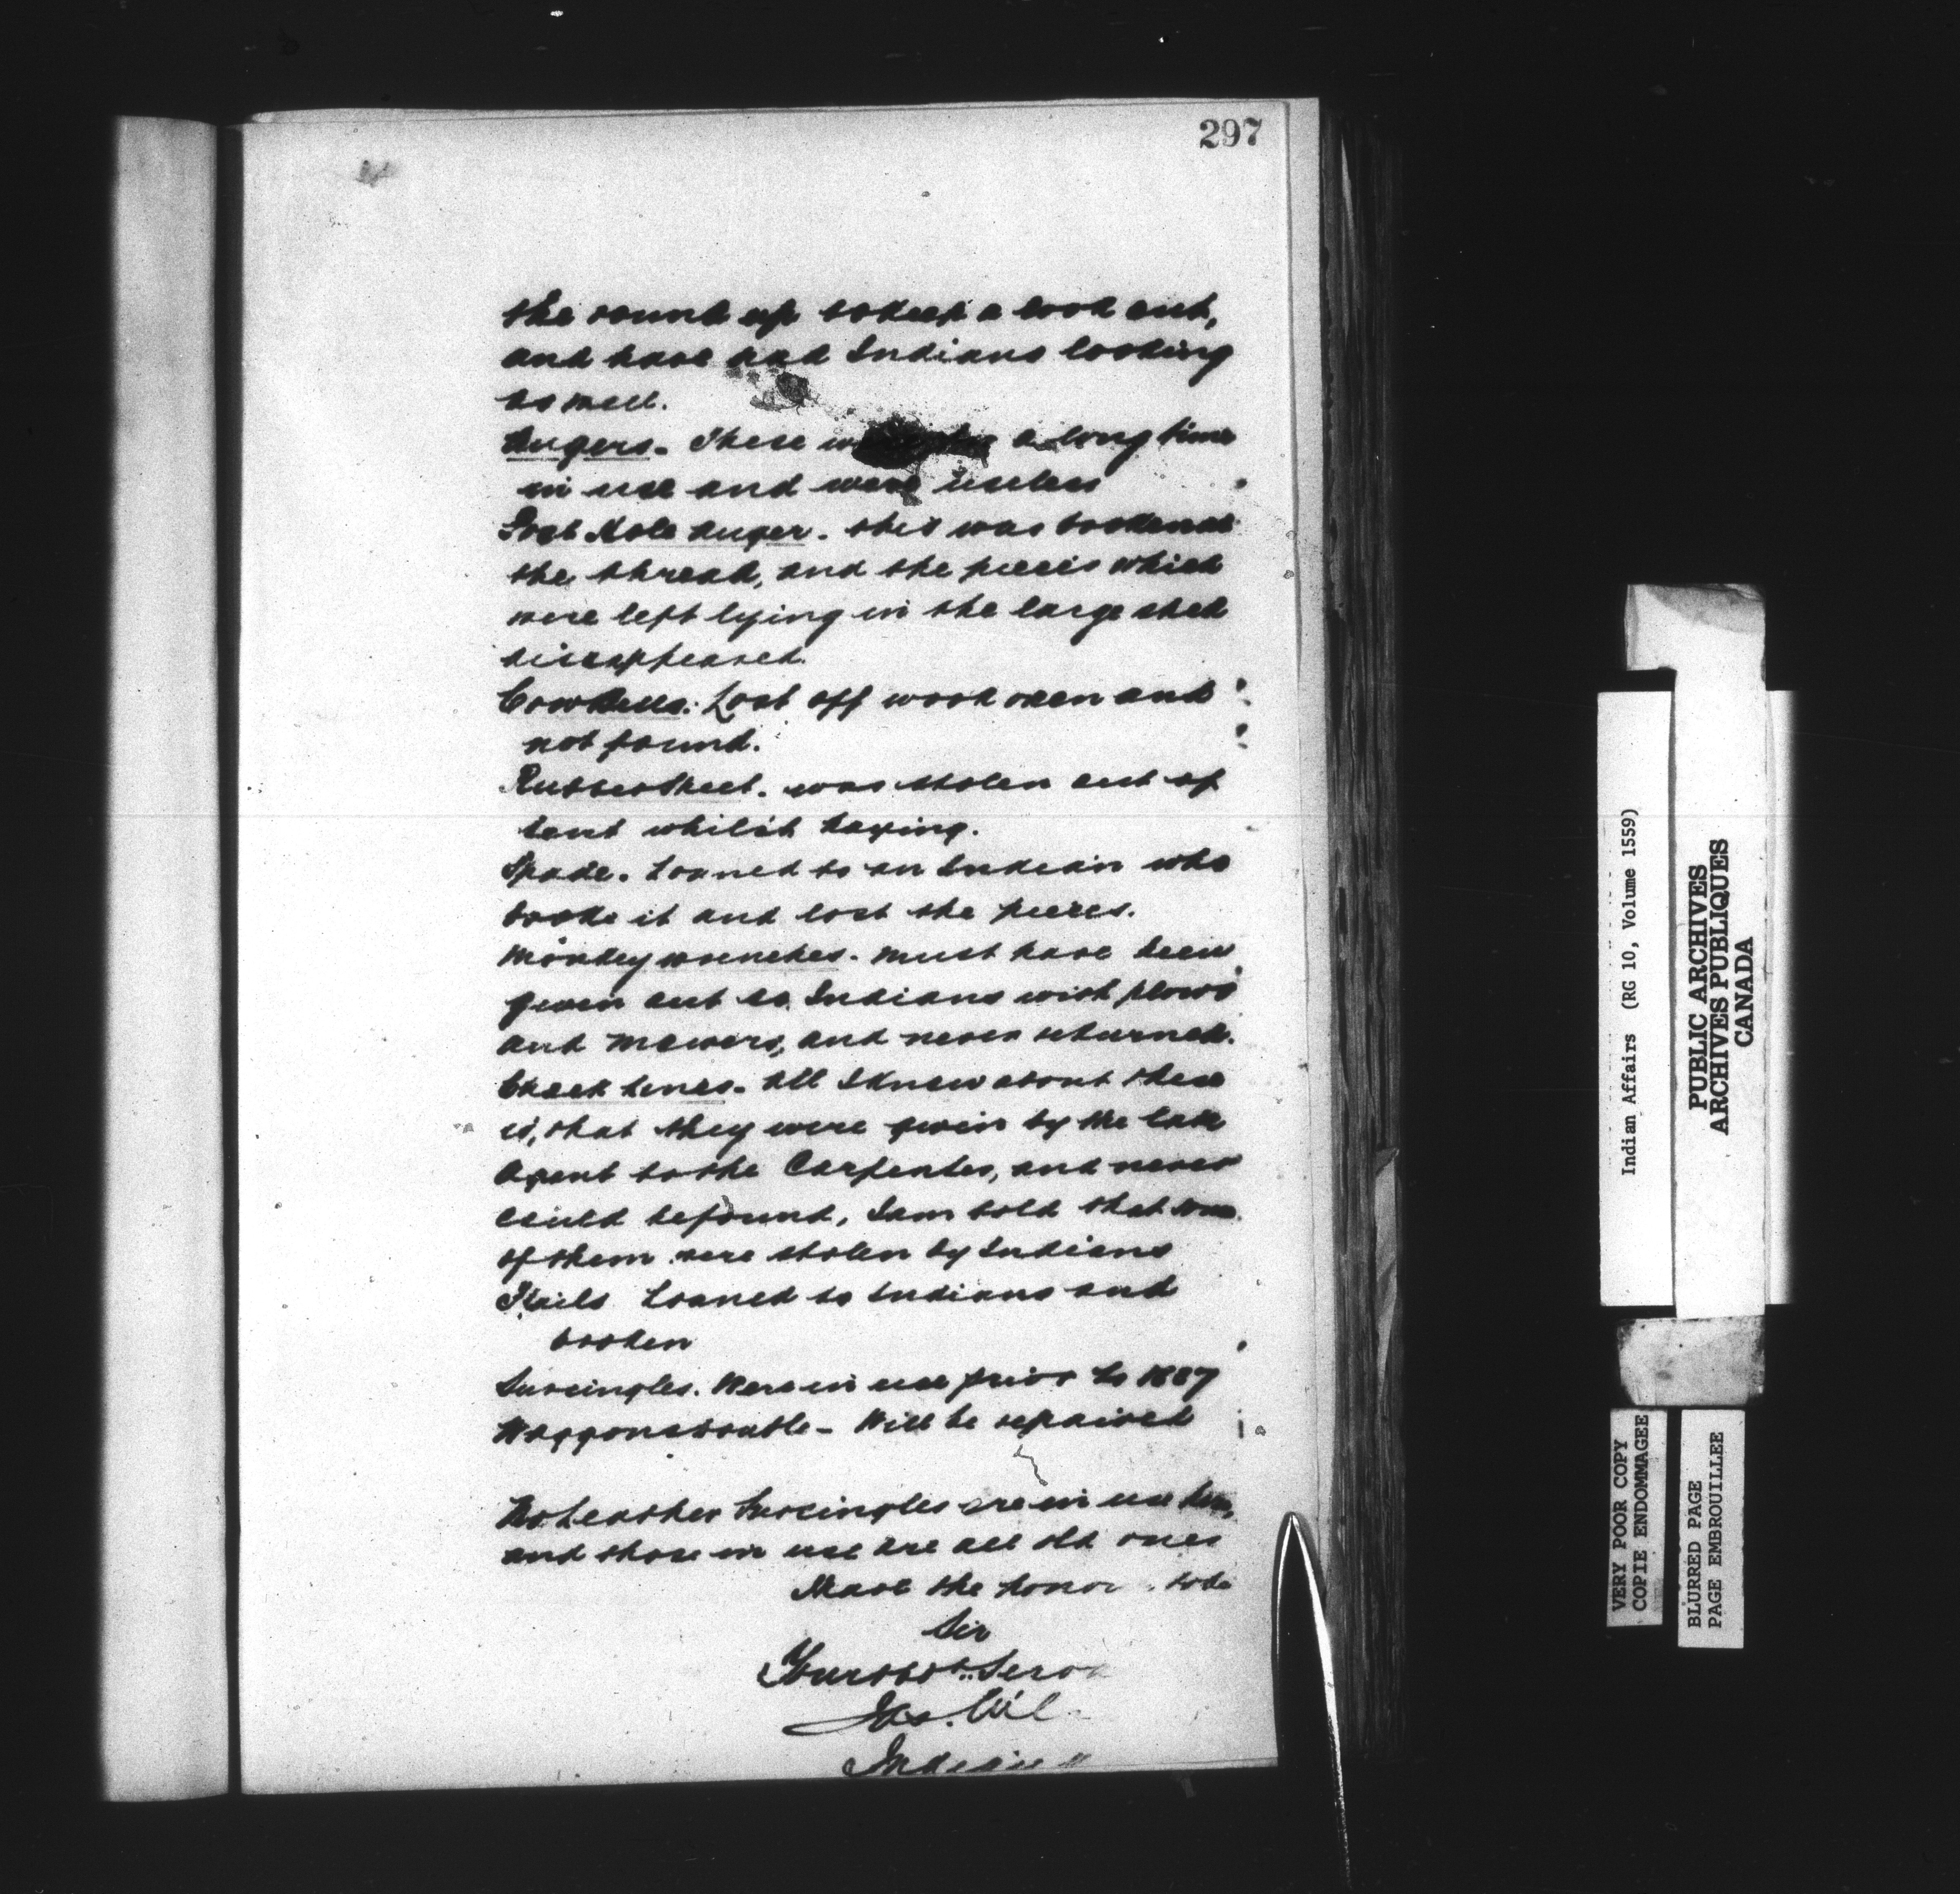 297
the round up to keep a look out,
and have had Indians looking
as well.
Augers. These a long time
in use and were useless
Post Hole Auger. this was broken at
the thread, and the pieces which
were left lying in the large shed
disappeared.
Cow Bells. Lost off work oxen and
not found.
Rubber Sheet. was stolen out of
tent whilst haying.
Spade. Loaned to an Indian who
broke it and lost the pieces.
Monkey wrenches. must have been
given out to Indians with plows
and mowers, and never returned.
Check lines. All I know about these
is, that they were given by the late
Agent to the Carpenter, and never
could be found, I am told that some
of them were stolen by Indians
Flails Loaned to Indians and
broken
Surcingles. Were in use prior to 1887
Waggons double - Will be repaired
No Leather Surcingles are in use here,
and those in use are all old ones
Have the honor to be
Sir
Your obt Serv
Jas. Wil
Indian
Indian Affairs (RG 10, Volume 1559)
PUBLIC ARCHIVES
ARCHIVES PUBLIQUES
CANADA
VERY POOR COPY
COPIE ENDOMMAGEE
BLURRED PAGE
PAGE EMBROUILLEE